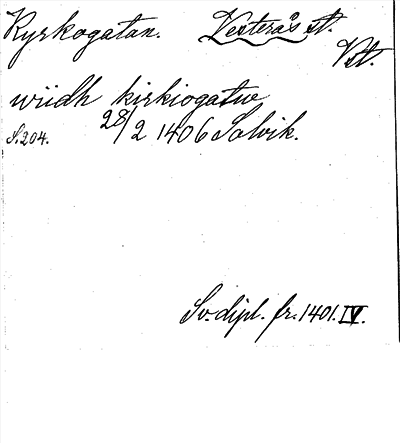 Kyrkogatan. Vesterås st.
Vstm.
wiidh kirkiogatw
S. 204. 28/2 1406 Salvik.
Sv. dipl. fr. 1401. IV.